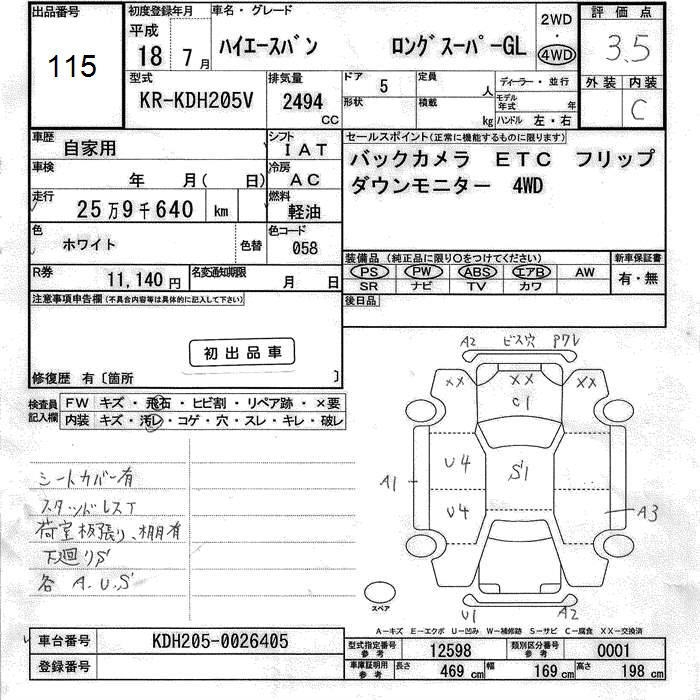 出品番号
115
初度登録年月
平成
18 7月
車名・グレード
ハイエースバン ロングスーパーGL
2WD
・
4WD
評価点
3.5
外装 内装
C
型式
KR-KDH205V
排気量
2494 CC
ドア 5
形状
定員 人
積載 kg
ディーラー・並行
モデル年式 年
ハンドル 左・右
車歴
自家用
シフト
IAT
車検
年 月( 日)
冷房
AC
走行
25万9千640 km
燃料
軽油
色
ホワイト
色替
色コード
058
R券
11,140円
名変通知期限
月 日
セールスポイント(正常に機能するものに限ります)
バックカメラ ETC フリップ
ダウンモニター 4WD
装備品(純正品に限り〇をつけてください)
新車保証書
PS PW ABS エアB AW
有・無
SR ナビ TV カワ
後日品
注意事項申告欄(不具合内容等は具体的に記入して下さい)
初出品車
修復歴 有〔箇所 〕
検査員記入欄
FW キズ・飛石・ヒビ割・リペア跡・×要
内装 キズ・汚レ・コゲ・穴・スレ・キレ・破レ
シートカバー有
スタッドレスT
荷室板張り、棚有
下廻りS
各 A.U.S
A2 ビス穴 P7レ
XX XX XX
C1
U4
S1
A1
U4
A3
スペア
U1 A2
A-キズ E-エクボ U-凹み W-補修跡 S-サビ C-腐食 XX-交換済
車台番号
KDH205-0026405
登録番号
型式指定番号
参考
12598
類別区分番号
参考
0001
車庫証明用
参考
長さ 469 cm
幅 169 cm
高さ 198 cm